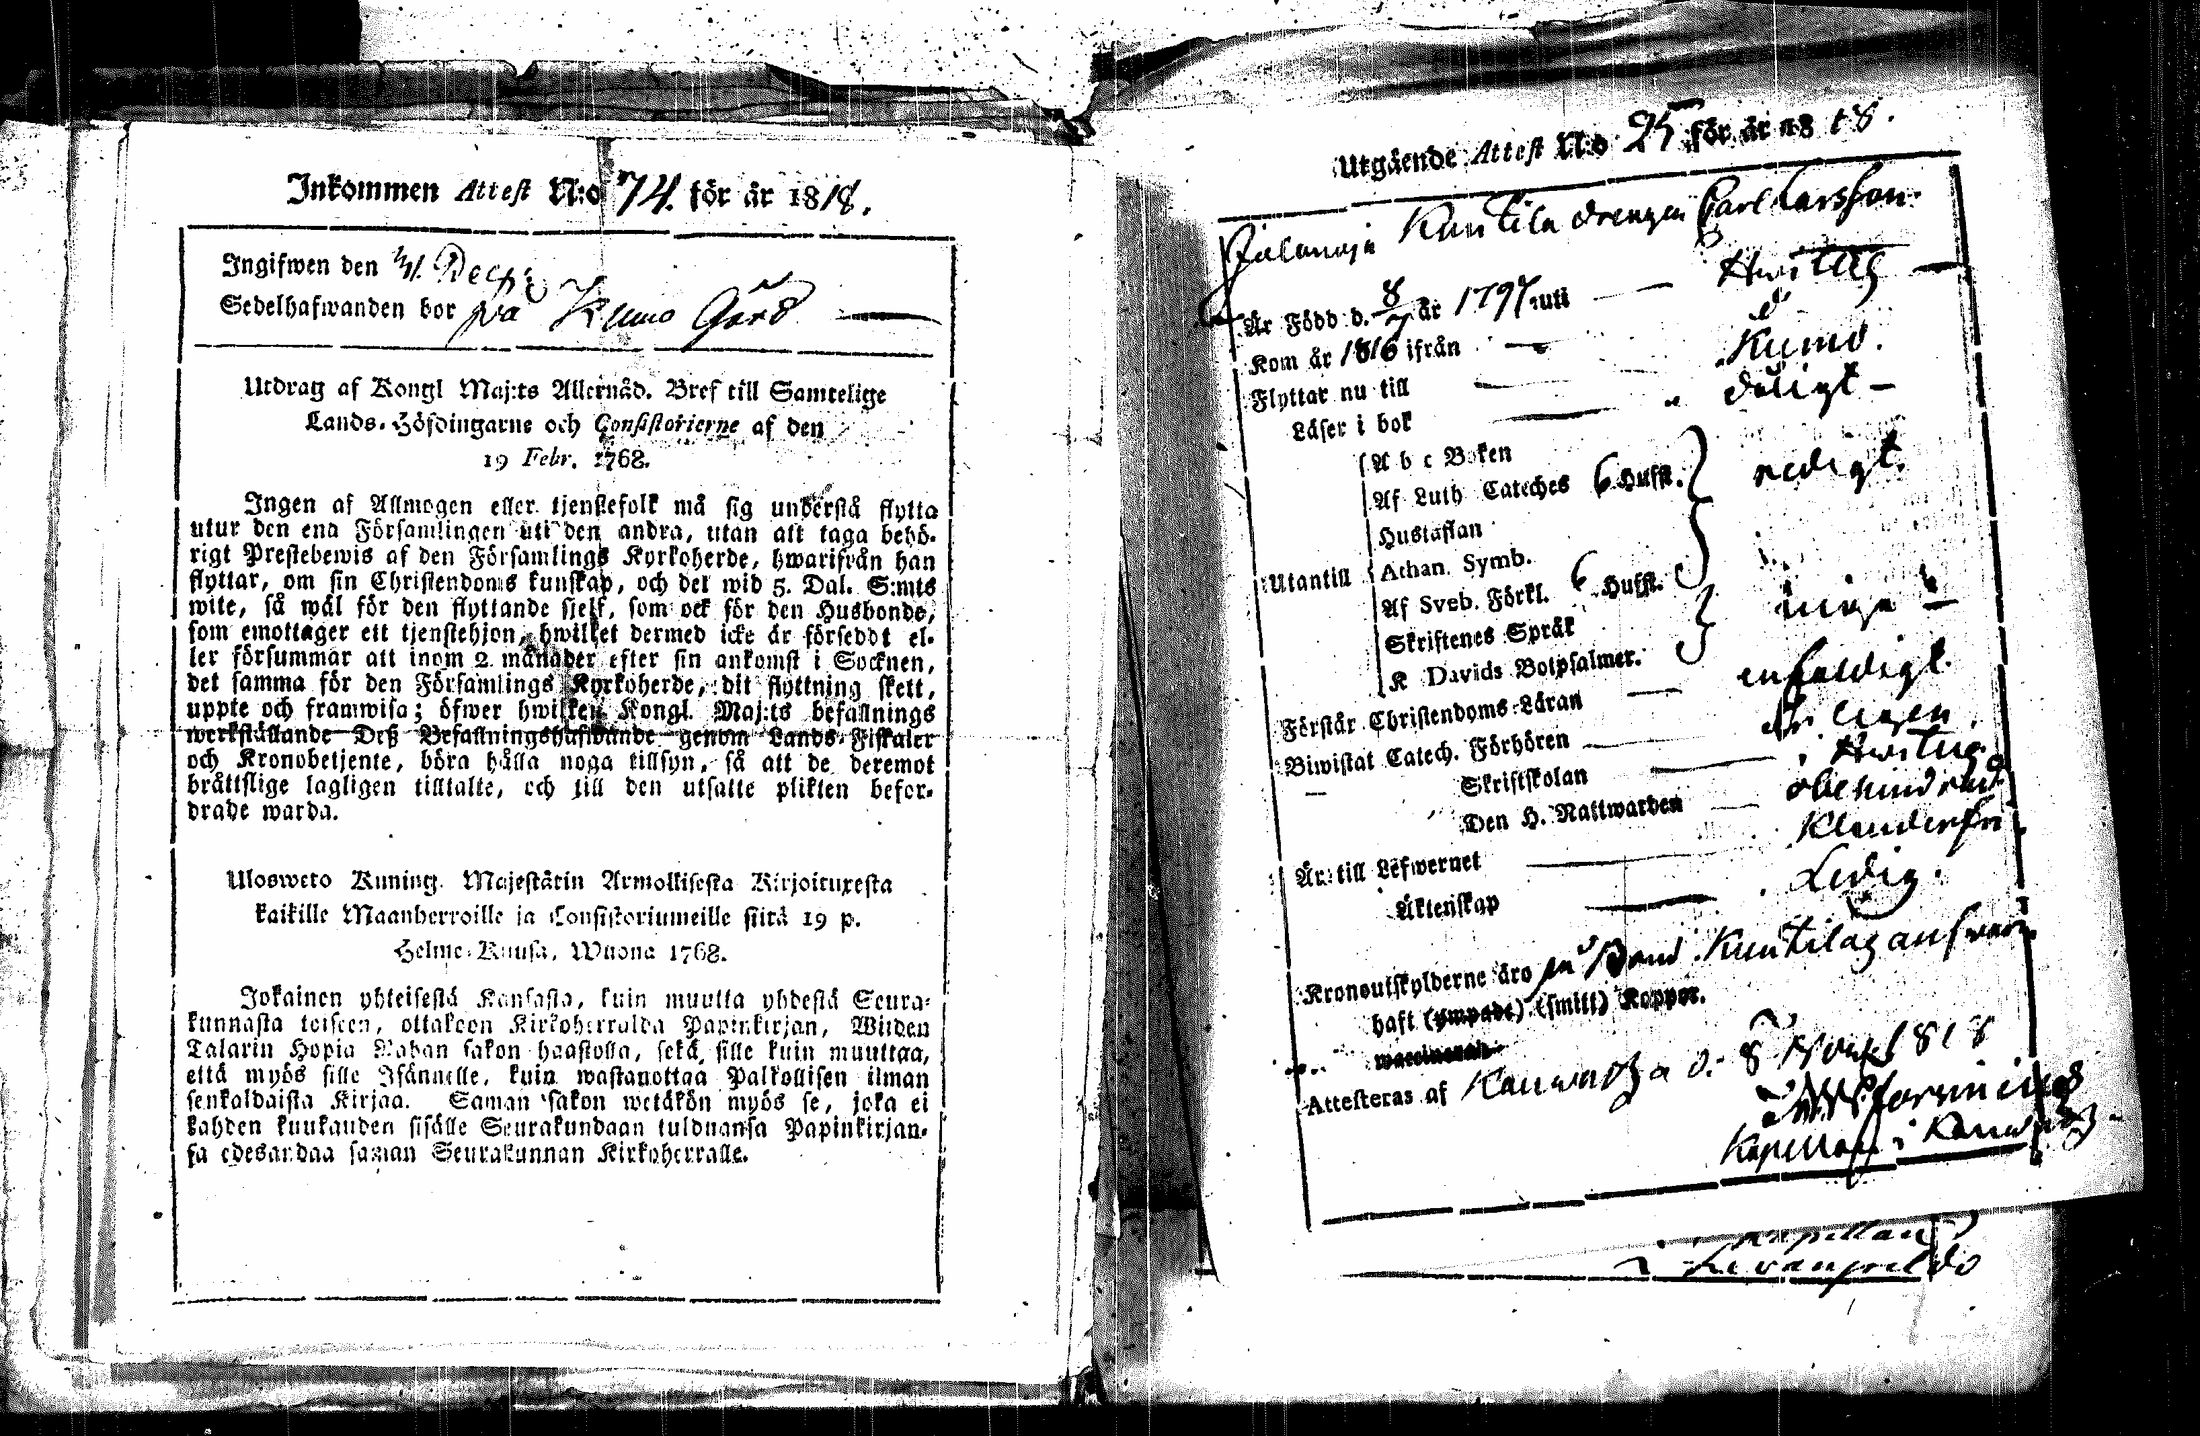 Inkommen Attest N:o 74. för år 1818.
Ingifwen den Dec
Sedelhafwanden bor på Kumo Gård
Utdrag af Kongl Maj:ts Allernåd. Bref till Samtelige
Lands-Höfdingarne och Consistorierne af den
19 Febr. 1768.
Ingen af Allmogen eller tjenstefolk må sig understå flytta
utur den ena Församlingen uti den andra, utan att taga behö-
rigt Prestebewis af den Församlings Kyrkoherde, hwarifrån han
flyttar, om sin Christendoms kunskap, och det wid 5. Dal. S:mts
wite, så wäl för den flyttande sjelf, som ock för den Husbonde,
som emottager ett tjenstehjon, hwilket dermed icke är försedt el-
ler försummar att inom 2 månader efter sin ankomst i Socknen,
det samma för den Församlings Kyrkoherde, dit flyttning skett,
uppte och framwisa; öfwer hwilken Kongl. Maj:ts befallnings
werkställande Deß Befallningshafwande genom Lands-Fiskaler
och Kronobetjente, böra hålla noga tillsyn, så att de deremot
bråttslige lagligen tilltalte, och till den utsatte plikten befor-
drade warda.
Ulosweto Kuning. Majestätin Armollisesta Kirjoituxesta
kaikille Maanherroille ja Consistoriumeille siitä 19 p.
Helme-Kuusa, Wuona 1768.
Jokainen yhteisestä Kansasta, kuin muutta yhdestä Seura-
kunnasta toiseen, ottakoon Kirkoherralda Papinkirjan, Wiiden
Talarin Hopia Rahan sakon haastolla, sekä sille kuin muuttaa,
että myös sille Isännelle, kuin wastanottaa Palkollisen ilman
senkaldaista Kirjaa. Saman sakon wetäkön myös se, joka ei
kahden kuukauden sisälle Seurakundaan tulduansa Papinkirjan-
sa edesandaa saman Seurakunnan Kirkoherralle.
Utgående Attest N:o 25 för år 1818.
Kuntila drengen Carl Larsson
Är Född d. 8/7 år 1797 uti Hwittis
Kom år 1816 ifrån d:o
Flyttar nu till Kumo.
Läser i bok dåligt
A b c Boken
Af Luth Cateches 6 Hufst. redigt.
Hustaflan
Utantill Athan. Symb.
Af Sveb. Förkl. 6 Hufst.
Skriftenes Språk inga
K Davids Botpsalmer.
Förstår Christendoms-Läran enfaldigt.
Biwistat Catech. Förhören
Skriftskolan i Hwittis
Den H. Nattwarden obehindrad
Är till Lefwernet Klanderfri
Äktenskap Ledig.
Kronoutskylderne äro på Bond Kuntilas answar
haft (ympade) (smitt) Koppor.
waccinerad
Attesteras af Kauwatza d. 8 Nov. 1818
Kapellan i Kauwatza
Kapellan
i